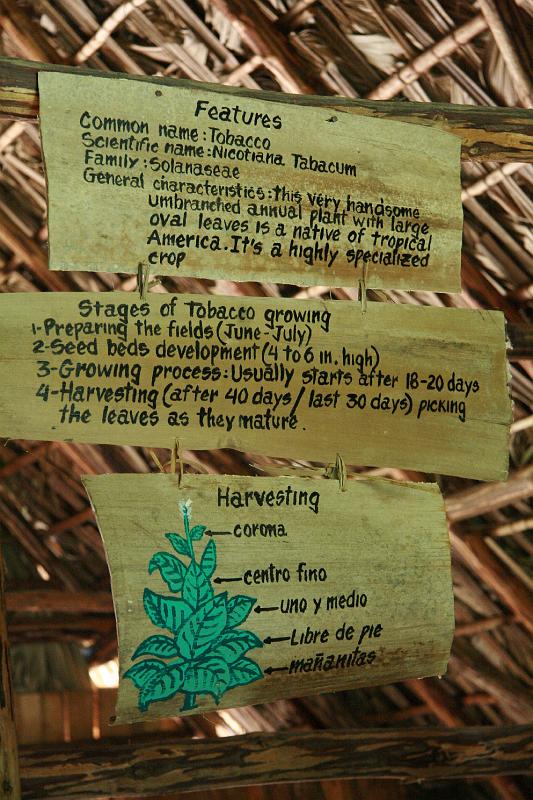 Features
Common name:Tobacco
Scientific name:Nicotiana Tabacum
Family:Solanaseae
General characteristics:this very handsome
umbranched annual plant with large
oval leaves is a native of tropical
America.It's a highly specialized
crop
Stages of Tobacco growing
1-Preparing the fields (June-July)
2-Seed beds development (4 to 6 in. high)
3-Growing process: Usually starts after 18-20 days
4-Harvesting (after 40 days / last 30 days) picking
the leaves as they mature.
Harvesting
corona
centro fino
uno y medio
Libre de pie
mañanitas